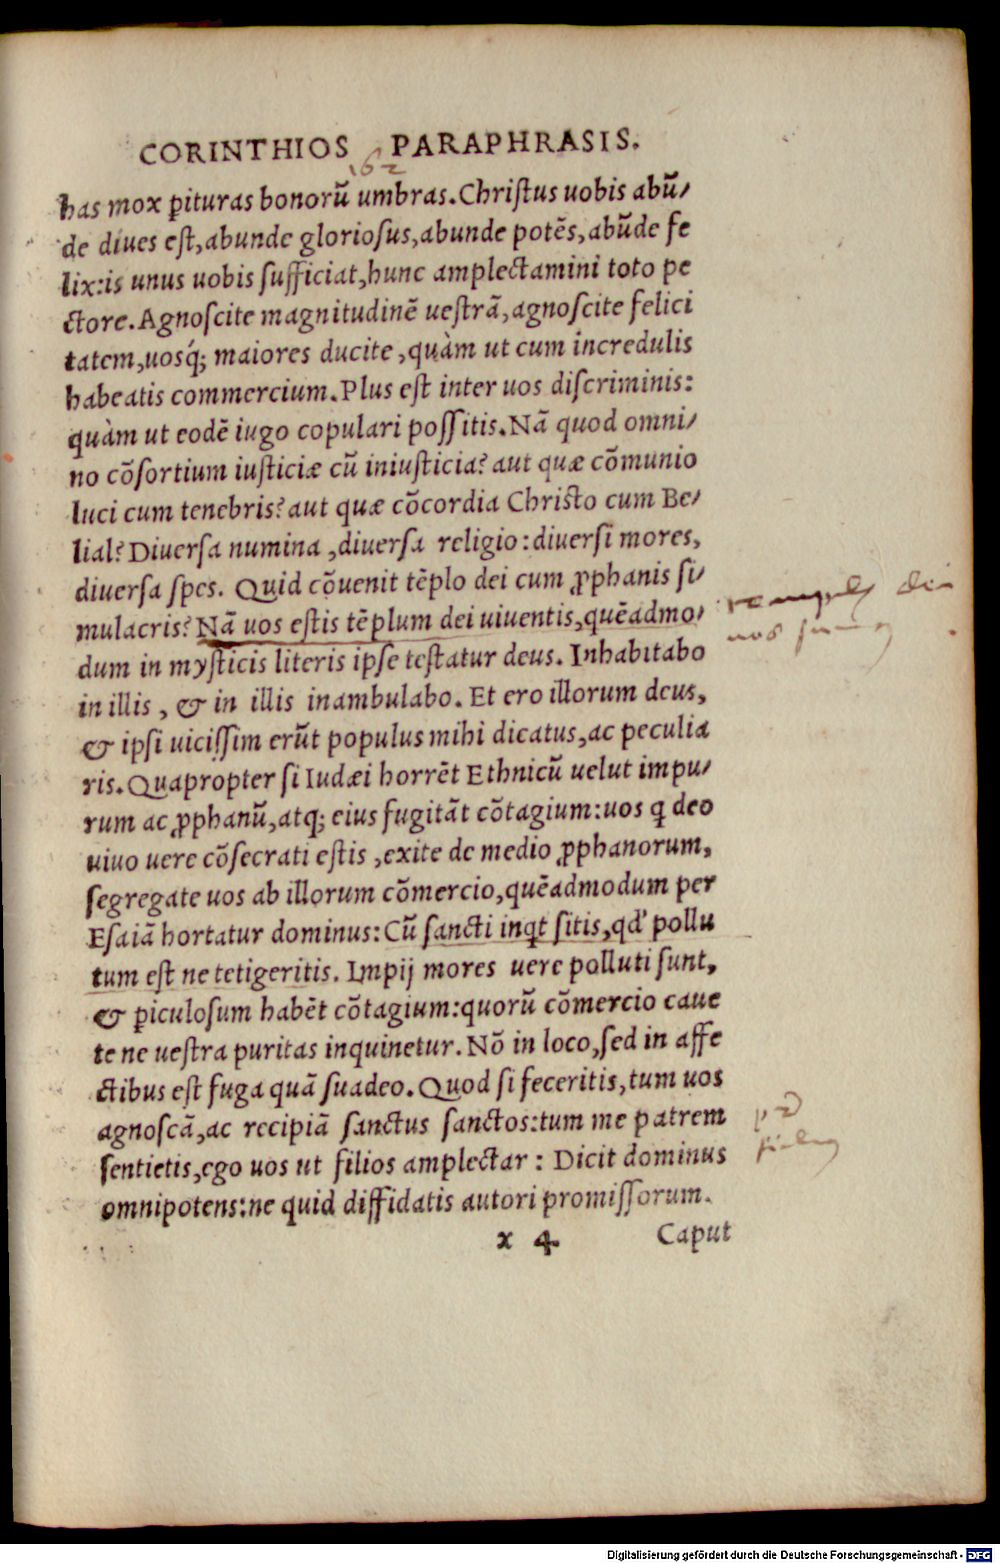 CORINTHIOS PARAPHRASIS.
162
has mox ꝑituras bonorũ umbras. Chriſtus uobis abũ/
de diues eſt, abunde glorioſus, abunde potẽs, abũde fe
lix: is unus uobis ſufficiat, hunc amplectamini toto pe
ctore. Agnoſcite magnitudinẽ ueſtrã, agnoſcite felici
tatem, uosq́; maiores ducite, quàm ut cum incredulis
habeatis commercium. Plus eſt inter uos diſcriminis:
quàm ut eodẽ iugo copulari poſſitis. Nã quod omni/
no cõſortium iuſticiæ cũ iniuſticia? aut quæ cõmunio
luci cum tenebris? aut quæ cõcordia Chriſto cum Be/
lial? Diuerſa numina, diuerſa religio: diuerſi mores,
diuerſa ſpes. Quid cõuenit tẽplo dei cum ꝓphanis ſi/
mulacris? Nã uos eſtis tẽplum dei uiuentis, quẽadmo/
dum in myſticis literis ipſe teſtatur deus. Inhabitabo
in illis, & in illis inambulabo. Et ero illorum deus,
& ipſi uiciſſim erũt populus mihi dicatus, ac peculia
ris. Quapropter ſi Iudæi horrẽt Ethnicũ uelut impu/
rum ac ꝓphanũ, atq; eius fugitãt cõtagium: uos ꝗ deo
uiuo uere cõſecrati eſtis, exite de medio ꝓphanorum,
ſegregate uos ab illorum cõmercio, quẽadmodum per
Eſaiã hortatur dominus: Cũ ſancti inꝗt ſitis, qd' pollu
tum eſt ne tetigeritis. Impij mores uere polluti ſunt,
& ꝑiculoſum habẽt cõtagium: quorũ cõmercio caue
te ne ueſtra puritas inquinetur. Nõ in loco, ſed in affe
ctibus eſt fuga quã ſuadeo. Quod ſi feceritis, tum uos
agnoſcã, ac recipiã ſanctus ſanctos: tum me patrem
ſentietis, ego uos ut filios amplectar: Dicit dominus
omnipotens: ne quid diffidatis autori promiſſorum.
x 4 Caput
Digitalisierung gefördert durch die Deutsche Forschungsgemeinschaft - DFG